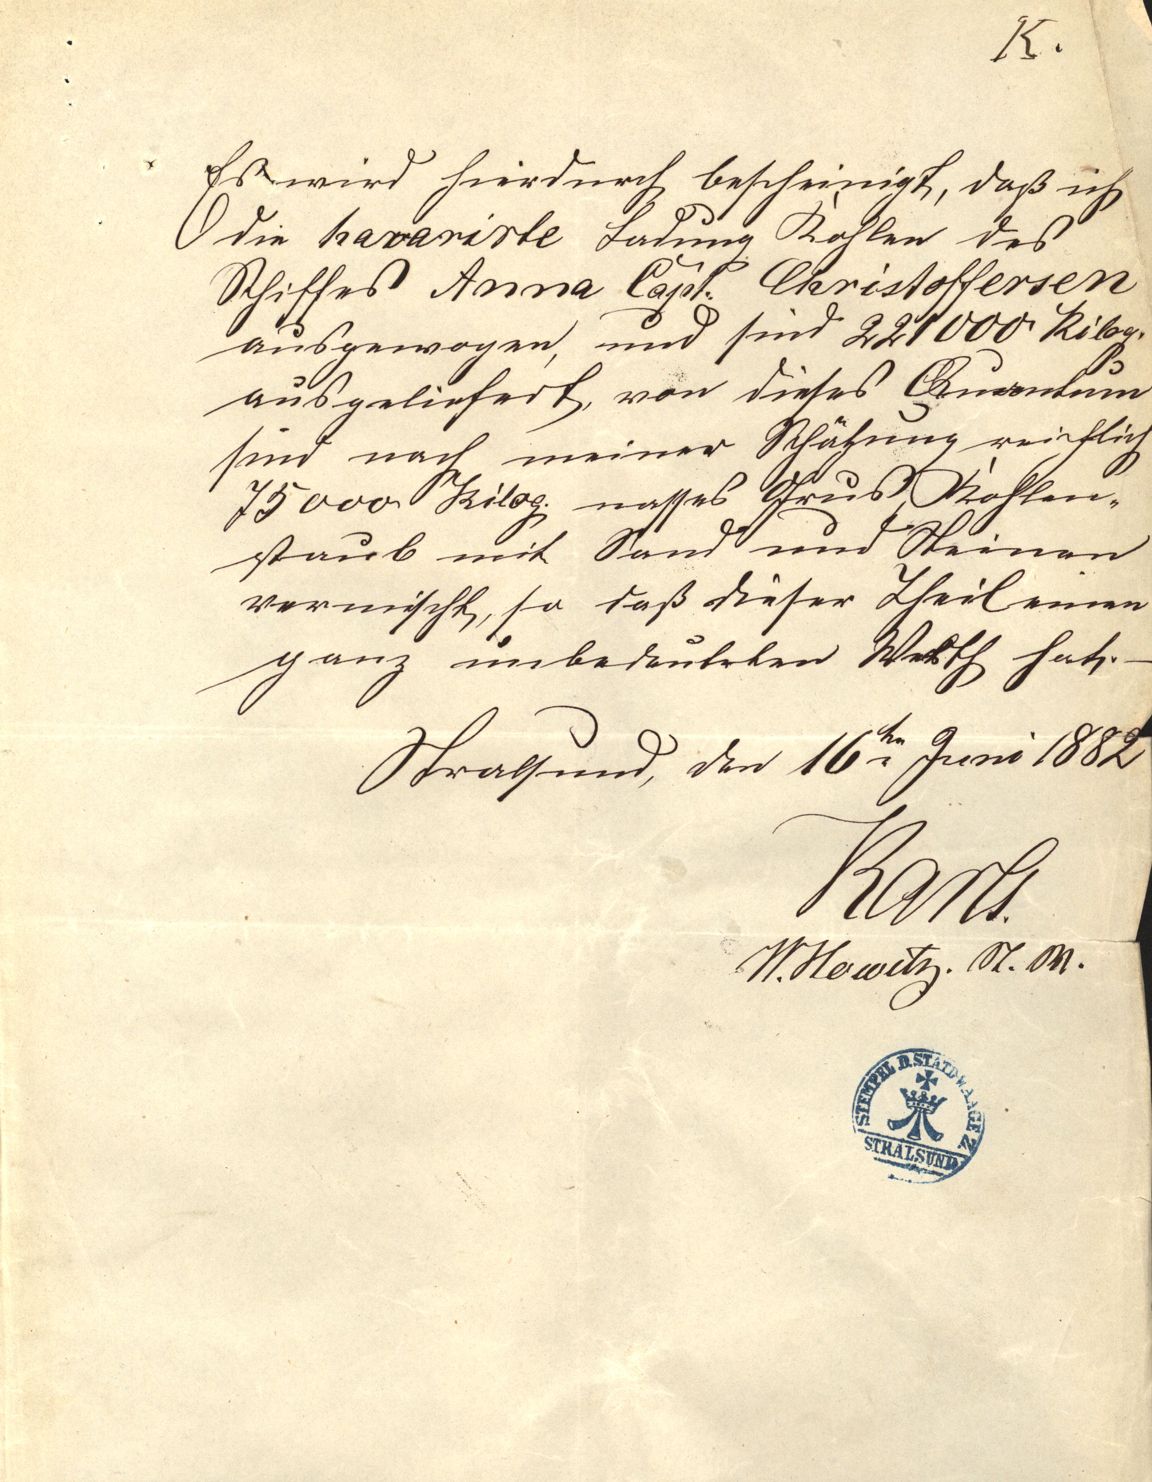 K.
Es wird hierdurch bescheinigt, daß ich
die havarirte Ladung Kohlen des
Schiffes Anna Capt. Christoffersen
ausgewogen, und sind 221000 Kilog.
ausgeliefert, von dieses Quantum
sind nach meiner Schätzung reichlich
75000 Kilog. nasses Grus, Kohlen-
staub mit Sand und Steinen
vermischt, so daß dieser Theil einen
ganz unbedeutenden Werth hat.—
Stralsund, den 16ten Juni 1882
W. Howitz. St. M.
STEMPEL D. STADTWAAGE Z.
STRALSUND